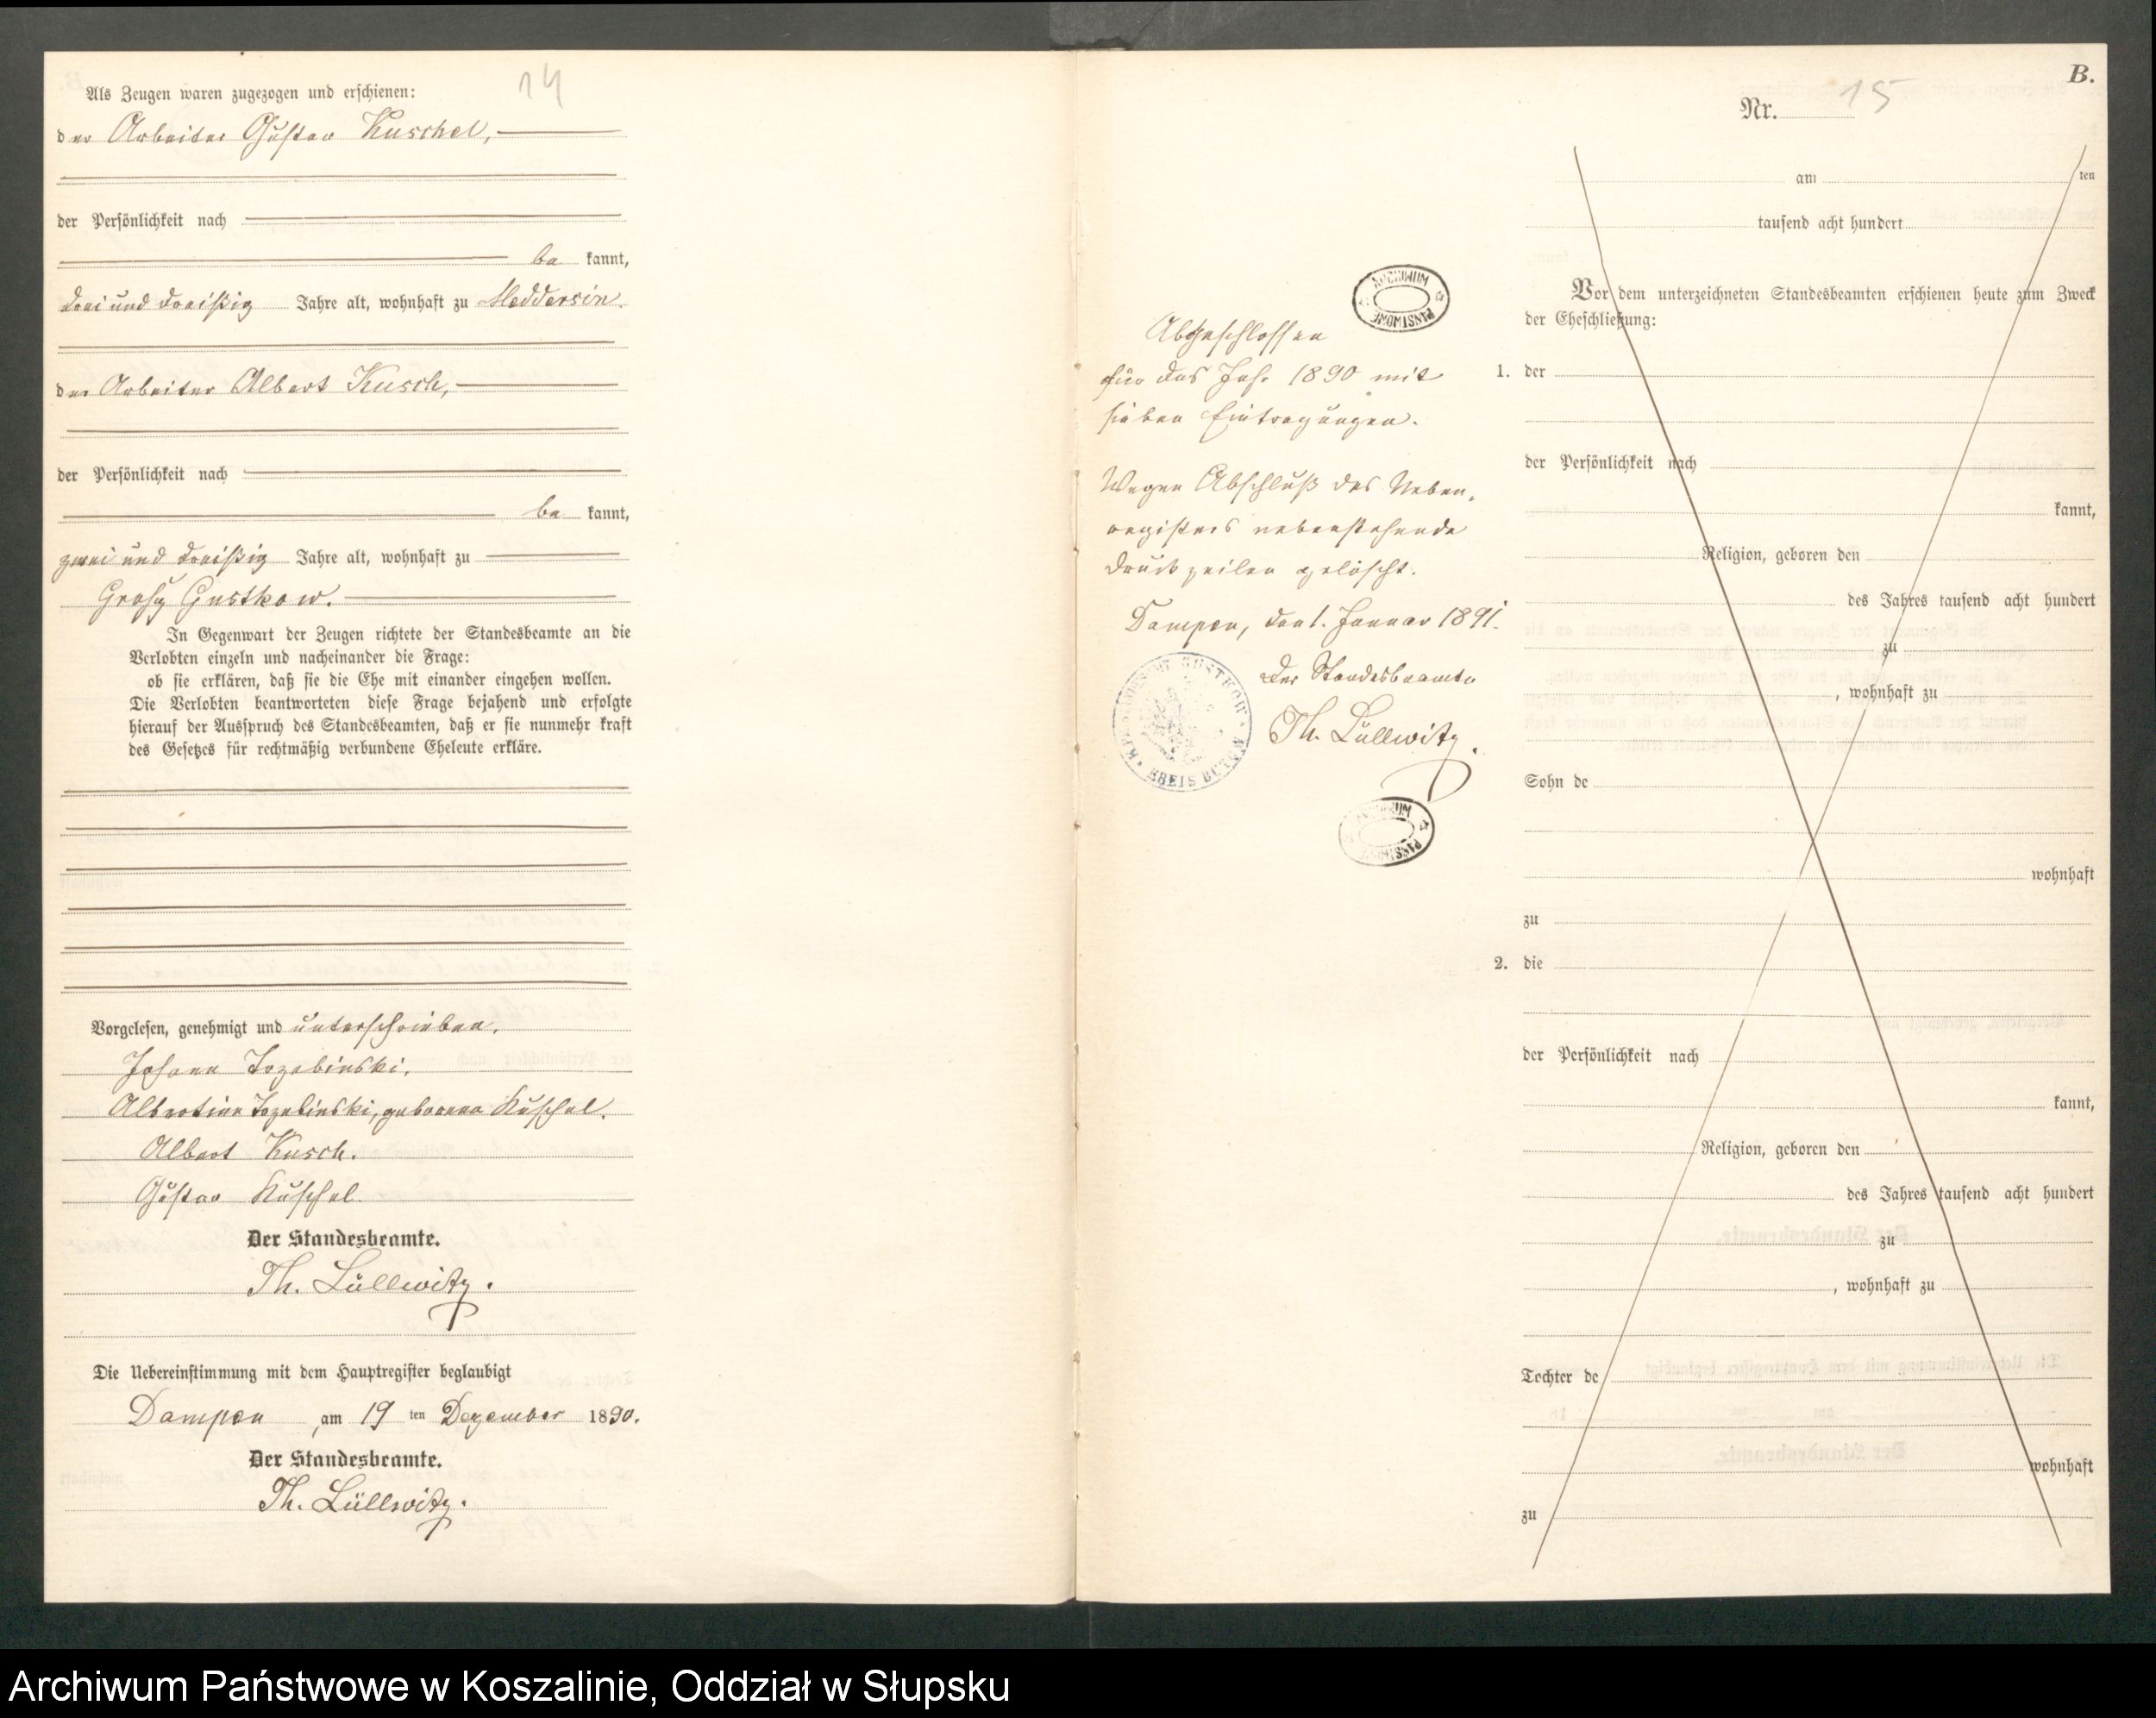 14
Als Zeugen waren zugezogen und erschienen:
der Arbeiter Gustav Kuschel,
der Persönlichkeit nach
be kannt,
drei und dreißig Jahre alt, wohnhaft zu Meddersin.
der Arbeiter Albert Kusch,
der Persönlichkeit nach
be kannt,
zwei und dreißig Jahre alt, wohnhaft zu
Groß Gustkow.
In Gegenwart der Zeugen richtete der Standesbeamte an die
Verlobten einzeln und nacheinander die Frage:
ob sie erklären, daß sie die Ehe mit einander eingehen wollen.
Die Verlobten beantworteten diese Frage bejahend und erfolgte
hierauf der Ausspruch des Standesbeamten, daß er sie nunmehr kraft
des Gesetzes für rechtmäßig verbundene Eheleute erkläre.
Vorgelesen, genehmigt und unterschrieben.
Johann Trzebinski.
Albertine Trzebinski, geborene Kuschel.
Albert Kusch.
Gustav Kuschel
Der Standesbeamte.
Th. Lüllwitz.
Die Uebereinstimmung mit dem Hauptregister beglaubigt
Dampen, am 19 ten Dezember 1890.
Der Standesbeamte.
Th. Lüllwitz.
ARCHIWUM PAŃSTWOWE
Abgeschlossen
für das Jahr 1890 mit
sieben Eintragungen.
Wegen Abschluß des Neben-
registers nebenstehende
Druckzeilen gelöscht.
Dampen, den 1. Januar 1891.
Der Standesbeamte
Th. Lüllwitz.
GUSTKOW KREIS BÜTOW
ARCHIWUM PAŃSTWOWE
B.
Nr. 15
am ten
tausend acht hundert
Vor dem unterzeichneten Standesbeamten erschienen heute zum Zweck
der Eheschließung:
1. der
der Persönlichkeit nach
kannt,
Religion, geboren den
des Jahres tausend acht hundert
zu
, wohnhaft zu
Sohn de
wohnhaft
zu
2. die
der Persönlichkeit nach
kannt,
Religion, geboren den
des Jahres tausend acht hundert
zu
, wohnhaft zu
Tochter de
wohnhaft
zu
Archiwum Państwowe w Koszalinie, Oddział w Słupsku